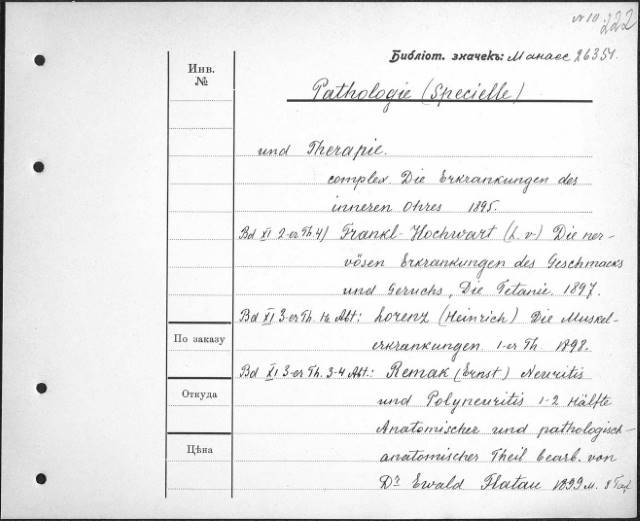 № 10 222
Библіот. значекъ: Манасс 26351.
Инв.
№
Pathologie (Specielle)
und Therapie.
complex. Die Erkrankungen des
inneren Ohres 1895.
Bd XI 2-er Th. 4) Frankl-Hochwart (L. v.) Die ner-
vösen Erkrankungen des Geschmacks
und Geruchs, Die Tetanie. 1897.
Bd XI 3-er Th. 1te Abt: Lorenz (Heinrich) Die Muskel-
erkrankungen. 1-er Th. 1898.
По заказу
Bd XI 3-er Th. 3-4 Abt: Remak (Ernst) Neuritis
Откуда
und Polyneuritis 1-2 Hälfte
Anatomischer und pathologisch-
Цѣна
anatomischer Theil bearb. von
Dr Ewald Flatau 1899 м. 8 Taf